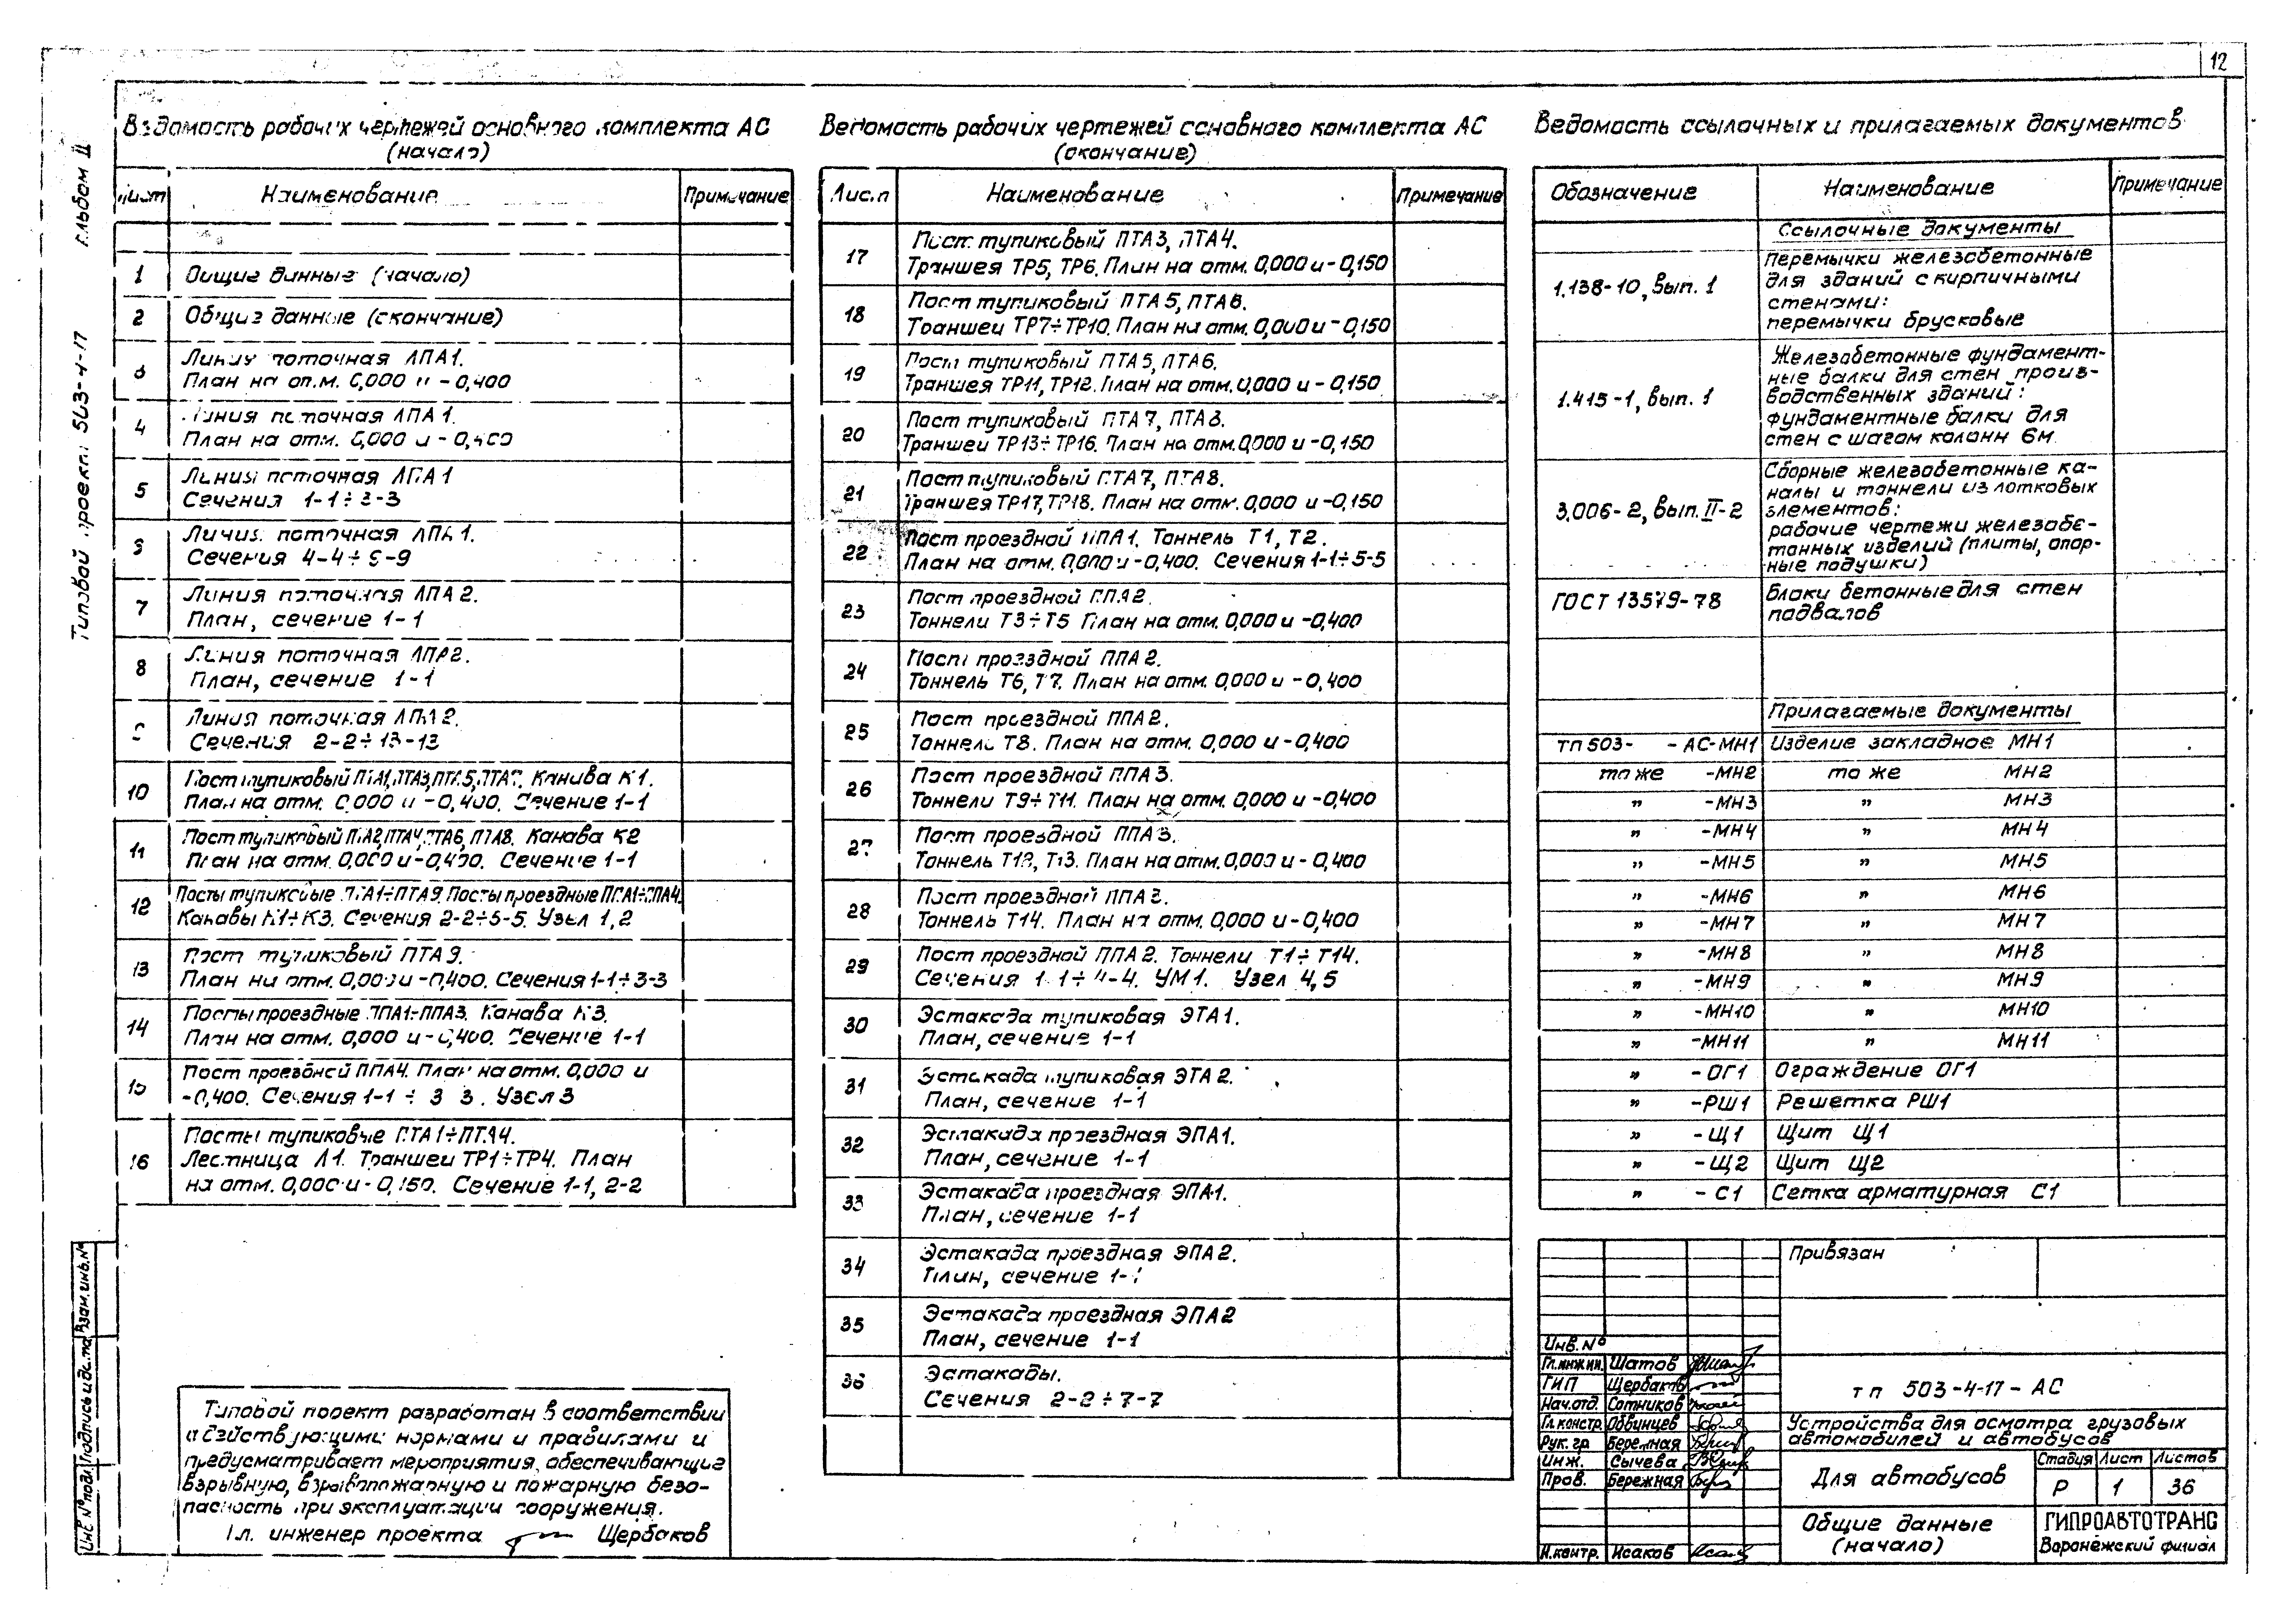 12
Альбом II
Типовой проект 503-4-17
Ведомость рабочих чертежей основного комплекта АС
(начало)
Лист Наименование Примечание
1 Общие данные (начало)
2 Общие данные (окончание)
3 Линия поточная ЛПА1.
План на отм. 0,000 и -0,400
4 Линия поточная ЛПА1.
План на отм. 0,000 и -0,400
5 Линия поточная ЛПА1
Сечения 1-1÷3-3
6 Линия поточная ЛПА1.
Сечения 4-4÷9-9
7 Линия поточная ЛПА2.
План, сечение 1-1
8 Линия поточная ЛПА2.
План, сечение 1-1
9 Линия поточная ЛПА2.
Сечения 2-2÷13-13
10 Пост тупиковый ПТА1, ПТА3, ПТА5, ПТА7. Канава К1.
План на отм. 0,000 и -0,400. Сечение 1-1
11 Пост тупиковый ПТА2, ПТА4, ПТА6, ПТА8. Канава К2
План на отм. 0,000 и -0,400. Сечение 1-1
12 Посты тупиковые ПТА1÷ПТА9. Посты проездные ППА1÷ППА4.
Канавы К1÷К3. Сечения 2-2÷5-5. Узел 1,2
13 Пост тупиковый ПТА9.
План на отм. 0,000 и -0,400. Сечения 1-1÷3-3
14 Посты проездные ППА1÷ППА3. Канава К3.
План на отм. 0,000 и -0,400. Сечение 1-1
15 Пост проездной ППА4. План на отм. 0,000 и
-0,400. Сечения 1-1 ÷ 3-3. Узел 3
16 Посты тупиковые ПТА1÷ПТА4.
Лестница Л1. Траншеи ТР1÷ТР4. План
на отм. 0,000 и -0,150. Сечение 1-1, 2-2
Типовой проект разработан в соответствии
с действующими нормами и правилами и
предусматривает мероприятия, обеспечивающие
взрывную, взрывопожарную и пожарную безо-
пасность при эксплуатации сооружения.
Гл. инженер проекта Щербаков
Взам. инв. №
Подпись и дата
Инв № подл
Ведомость рабочих чертежей основного комплекта АС
(окончание)
Лист Наименование Примечание
17 Пост тупиковый ПТА3, ПТА4.
Траншея ТР5, ТР6. План на отм. 0,000 и -0,150
18 Пост тупиковый ПТА5, ПТА6.
Траншеи ТР7÷ТР10. План на отм. 0,000 и -0,150
19 Пост тупиковый ПТА5, ПТА6.
Траншея ТР11, ТР12. План на отм. 0,000 и -0,150
20 Пост тупиковый ПТА7, ПТА8.
Траншеи ТР13÷ТР16. План на отм. 0,000 и -0,150
21 Пост тупиковый ПТА7, ПТА8.
Траншея ТР17, ТР18. План на отм. 0,000 и -0,150
22 Пост проездной ППА1. Тоннель Т1, Т2.
План на отм. 0,000 и -0,400. Сечения 1-1÷5-5
23 Пост проездной ППА2.
Тоннели Т3÷Т5 План на отм. 0,000 и -0,400
24 Пост проездной ППА2.
Тоннель Т6, Т7. План на отм. 0,000 и -0,400
25 Пост проездной ППА2.
Тоннель Т8. План на отм. 0,000 и -0,400
26 Пост проездной ППА3.
Тоннели Т9÷Т11. План на отм. 0,000 и -0,400
27 Пост проездной ППА3.
Тоннель Т12, Т13. План на отм. 0,000 и -0,400
28 Пост проездной ППА3.
Тоннель Т14. План на отм. 0,000 и -0,400
29 Пост проездной ППА2. Тоннели Т1÷Т14.
Сечения 1-1÷4-4. УМ1. Узел 4,5
30 Эстакада тупиковая ЭТА1.
План, сечение 1-1
31 Эстакада тупиковая ЭТА2.
План, сечение 1-1
32 Эстакада проездная ЭПА1.
План, сечение 1-1
33 Эстакада проездная ЭПА1.
План, сечение 1-1
34 Эстакада проездная ЭПА2.
План, сечение 1-1
35 Эстакада проездная ЭПА2
План, сечение 1-1
36 Эстакады.
Сечения 2-2÷7-7
Ведомость ссылочных и прилагаемых документов
Обозначение Наименование Примечание
Ссылочные документы
1.138-10, вып. 1 Перемычки железобетонные
для зданий с кирпичными
стенами:
перемычки брусковые
1.415-1, вып. 1 Железобетонные фундамент-
ные балки для стен произ-
водственных зданий:
фундаментные балки для
стен с шагом колонн 6м.
3.006-2, вып. II-2 Сборные железобетонные ка-
налы и тоннели из лотковых
элементов:
рабочие чертежи железобе-
тонных изделий (плиты, опор-
ные подушки)
ГОСТ 13579-78 Блоки бетонные для стен
подвалов
Прилагаемые документы
тп 503- -АС-МН1 Изделие закладное МН1
то же -МН2 то же МН2
" -МН3 " МН3
" -МН4 " МН4
" -МН5 " МН5
" -МН6 " МН6
" -МН7 " МН7
" -МН8 " МН8
" -МН9 " МН9
" -МН10 " МН10
" -МН11 " МН11
" -ОГ1 Ограждение ОГ1
" -РШ1 Решетка РШ1
" -Щ1 Щит Щ1
" -Щ2 Щит Щ2
" -С1 Сетка арматурная С1
Привязан
Инв. №
Гл. инжин. Шатов
ГИП Щербаков
Нач. отд. Сотников
Гл. констр. Обвинцев
Рук. гр. Бережная
Инж. Сычева
Пров. Бережная
Н. контр. Исаков
тп 503-4-17-АС
Устройства для осмотра грузовых
автомобилей и автобусов
Для автобусов
Стадия Лист Листов
Р 1 36
Общие данные
(начало)
ГИПРОАВТОТРАНС
Воронежский филиал